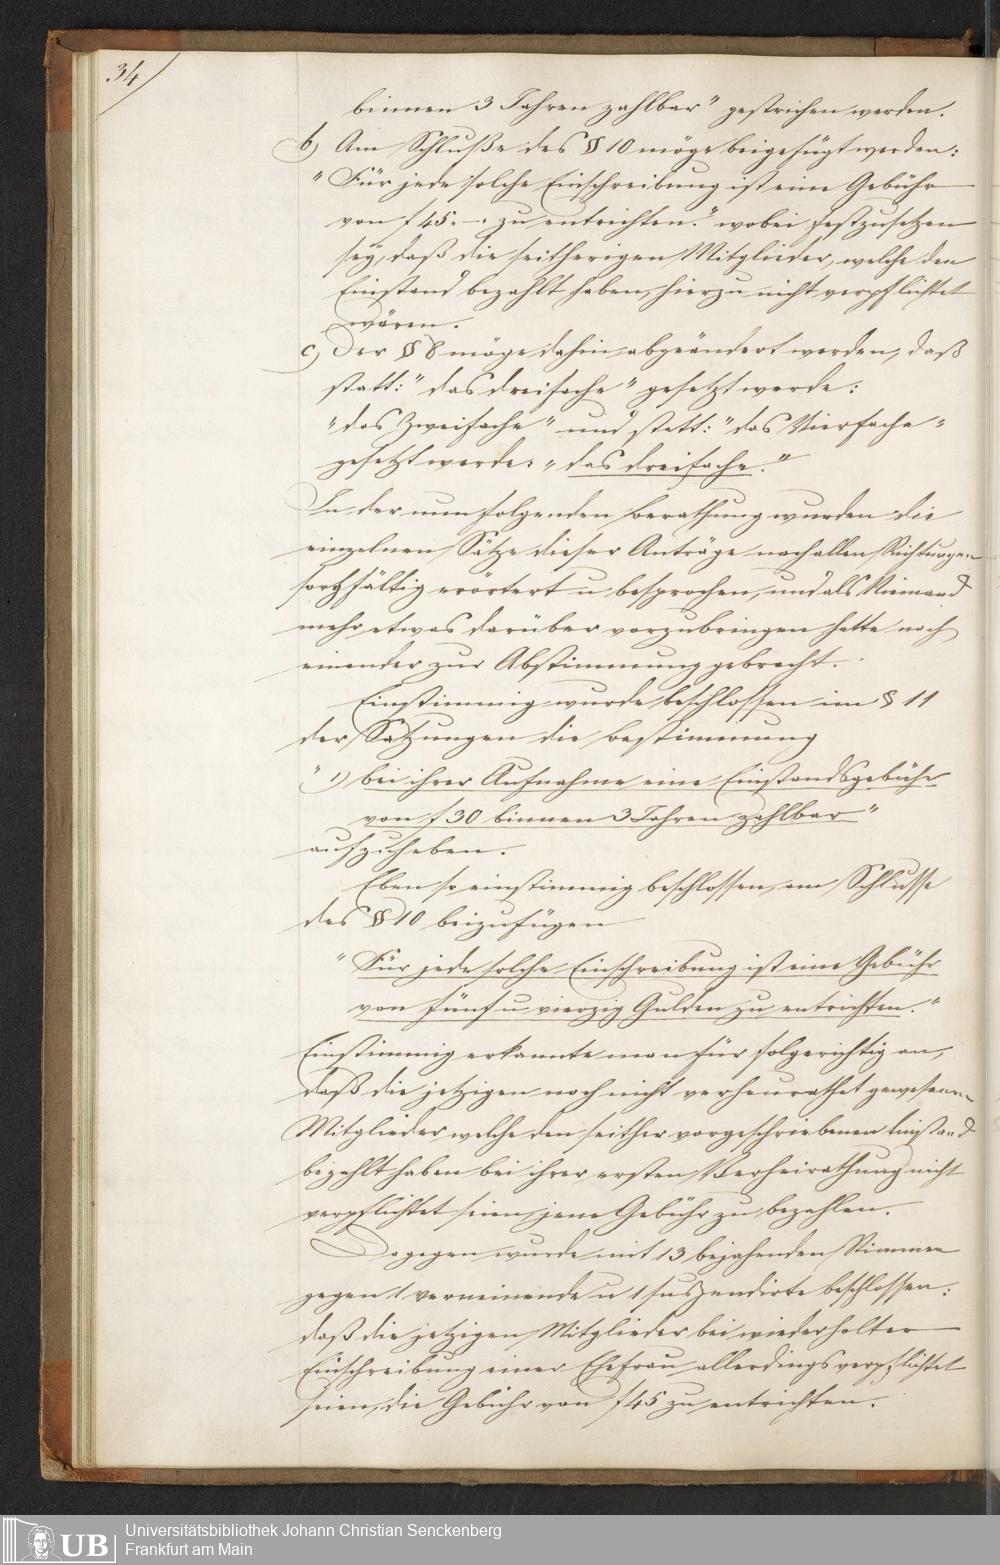 34
binnen 3 Jahren zahlbar" gestrichen werden.
b) Am Schluße des § 10 möge beigefügt werden:
" Für jede solche Einschreibung ist eine Gebühr
von f 45.–. zu entrichten." wobei festzusetzen
sey, daß die seitherigen Mitglieder, welche den
Einstand bezahlt haben, hierzu nicht verpflichtet
wären.
c) Der § 8 möge dahin abgeändert werden, daß
statt: " das dreifache " gesetzt werde:
" das Zweifache " und statt: " das Vierfache "
gesetzt werde: " das dreifache."
In der nun folgenden Berathung wurden die
einzelnen Sätze dieser Anträge nach allen Richtungen
sorgfältig erörtert u besprochen, und als Niemand
mehr etwas darüber vorzubringen hatte nach
einander zur Abstimmung gebracht.
Einstimmig wurde beschlossen im § 11
der Satzungen die Bestimmung
" 1) bei ihrer Aufnahme eine Einstandsgebühr
von f 30 binnen 3 Jahren zahlbar "
aufzuheben.
Eben so einstimmig beschlossen, am Schlusse
des § 10 beizufügen
" Für jede solche Einschreibung ist eine Gebühr
von fünf u. vierzig Gulden zu entrichten."
Einstimmig erkannte man für folgerichtig an,
daß die jetzigen noch nicht verheurathet gewesenen
Mitglieder welche den seither vorgeschriebenen Einstand
bezahlt haben bei ihrer ersten Verheirathung nicht
verpflichtet seien, jene Gebühr zu bezahlen.
Dagegen wurde mit 13 bejahenden Stimmen
gegen 1 verneinende u 1 suspendirte beschlossen:
daß die jetzigen Mitglieder bei wiederholter
Einschreibung einer Ehefrau allerdings verpflichtet
seien, die Gebühr von f 45 zu entrichten.
UB
Universitätsbibliothek Johann Christian Senckenberg
Frankfurt am Main